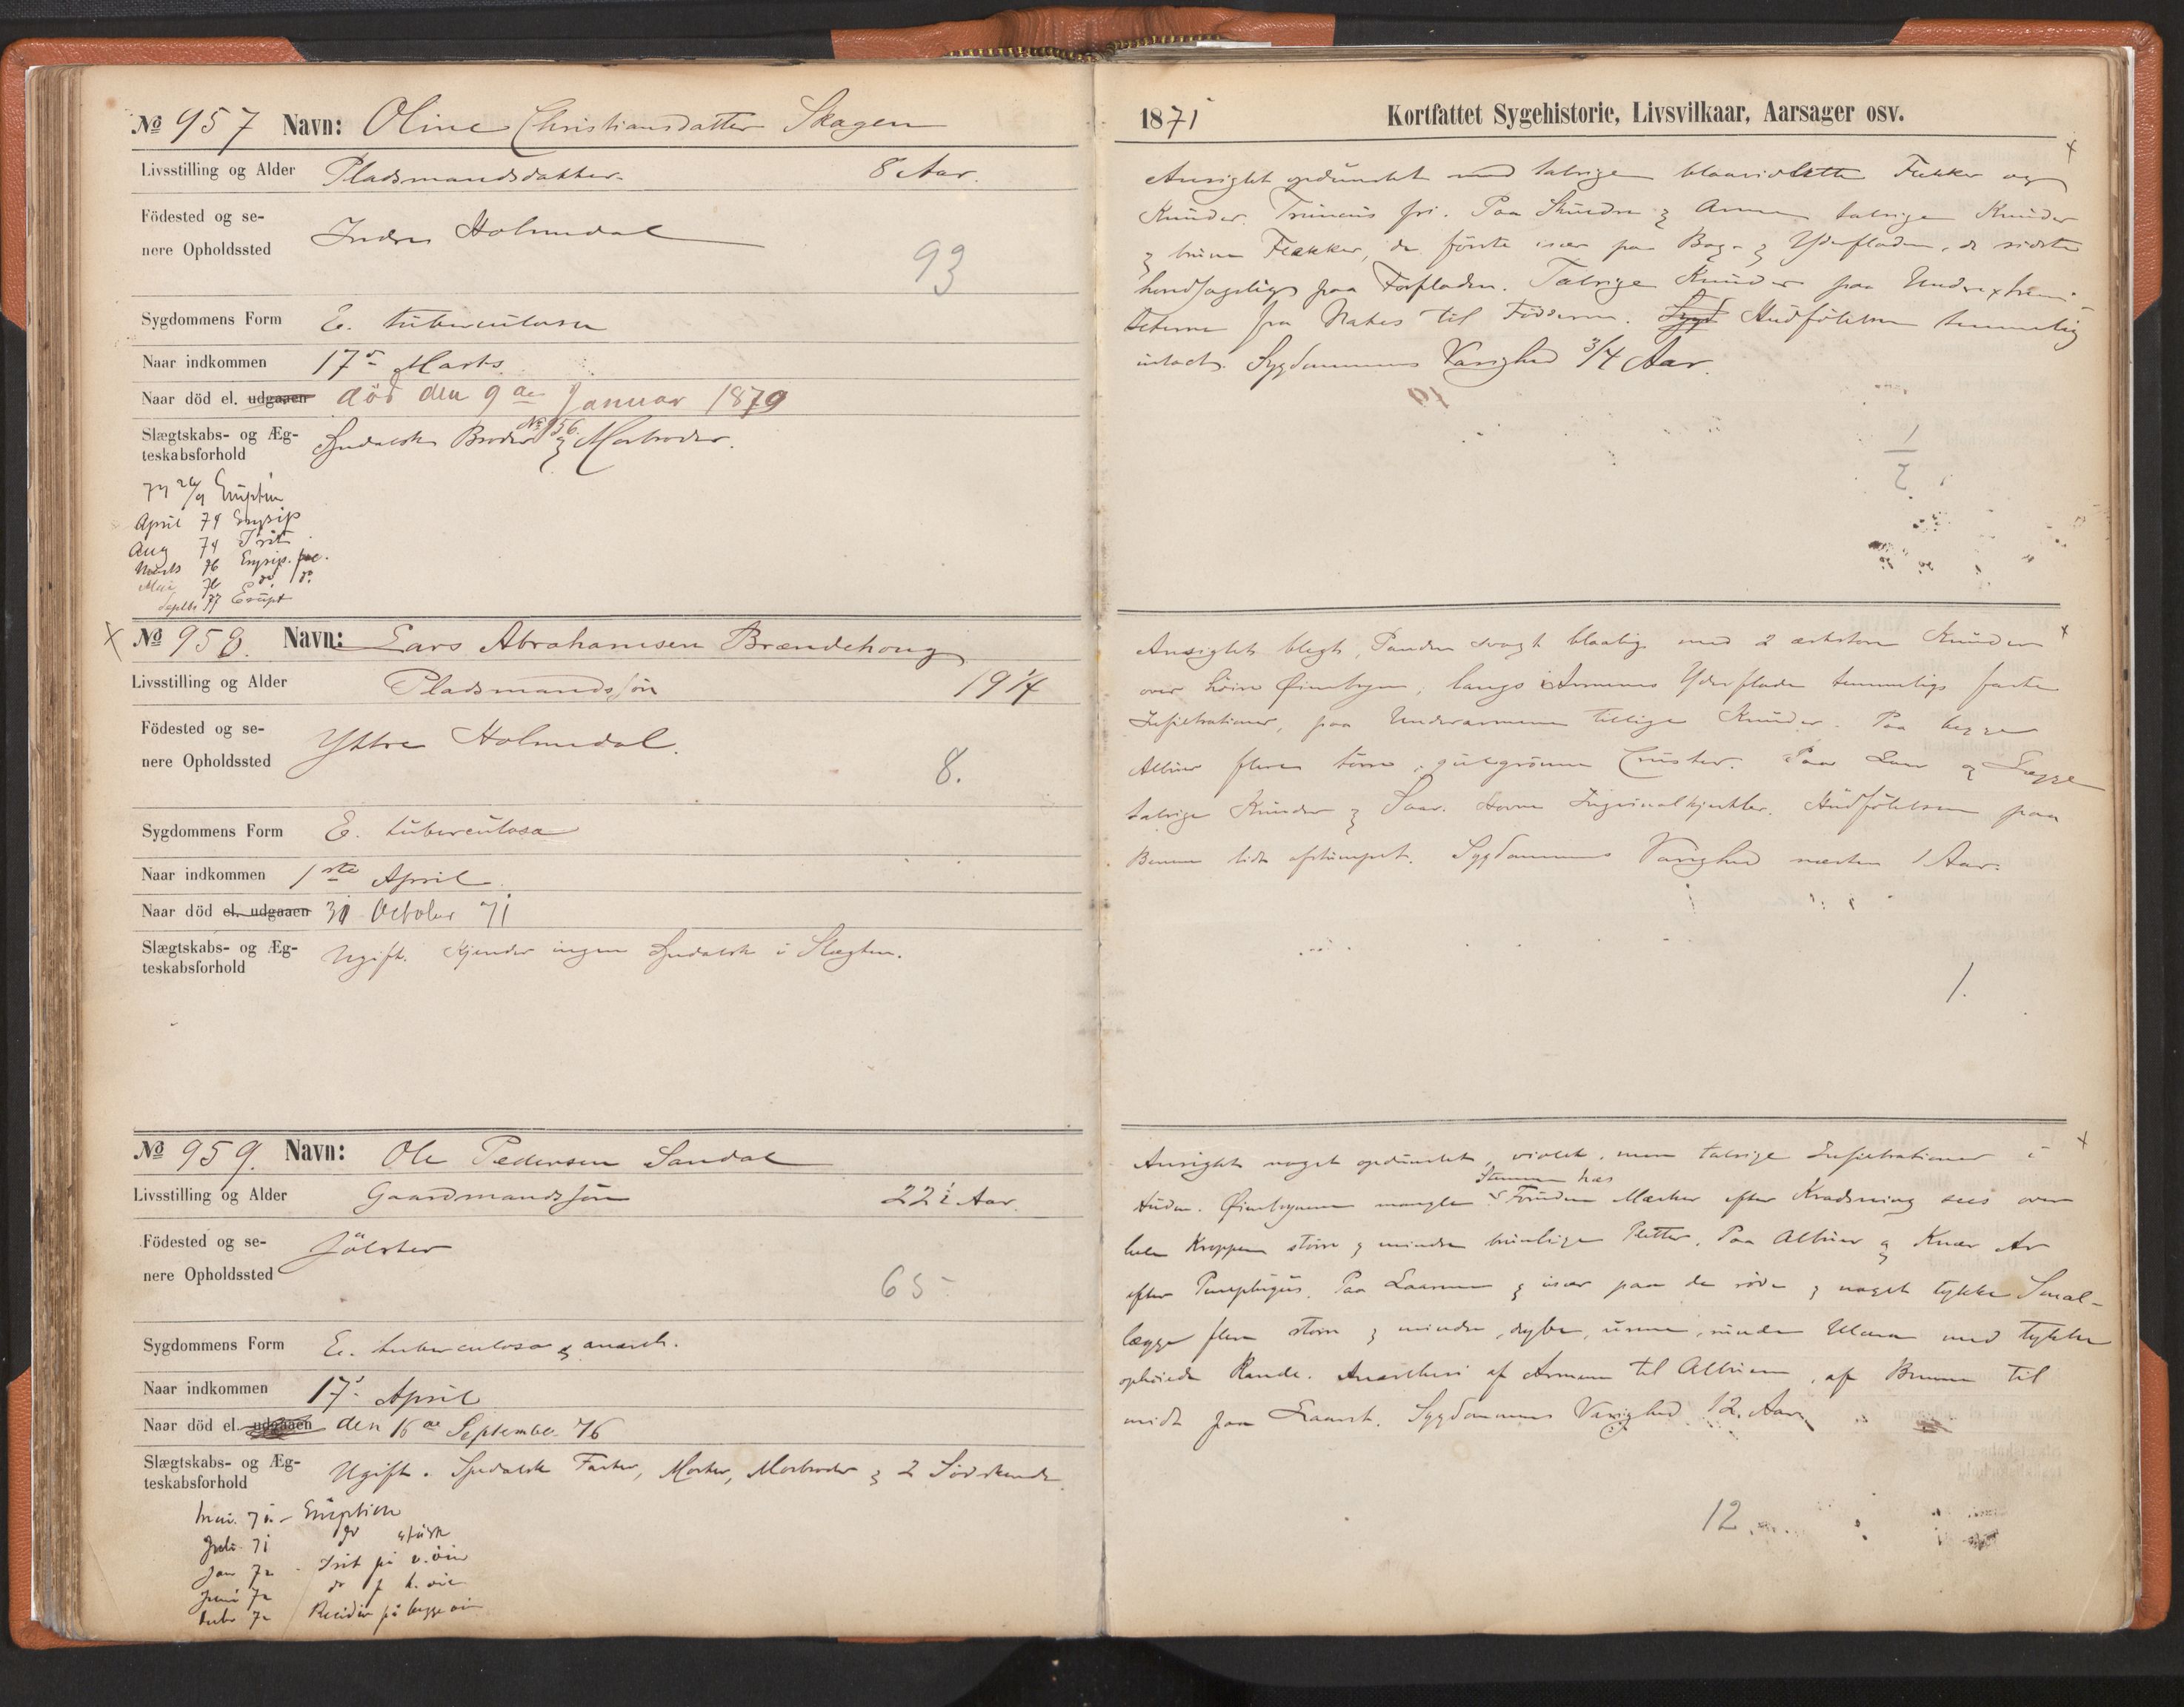 № 957 Navn: Oline Christiansdatter Skagen
Livsstilling og Alder Pladsmandsdatter. 8 Aar.
Födested og se-
nere Opholdssted Indre Holmedal
93
Sygdommens Form E. tuberculosa
Naar indkommen 17de Marts
Naar död el. udgaaen död den 9de Januar 1879
Slægtskabs- og Æg-
teskabsforhold Spedalsk Broder No 956 & Morbroder.
Eruption
April 74 Erysip
Aug 74 Irit
Marts 76 Erysip. fac.
Mai 76 do do
Septbr 77 Erupt
№ 958. Navn: Lars Abrahamsen Brændehoug
Livsstilling og Alder Pladsmandssön 19 1/4
Födested og se-
nere Opholdssted Yttre Holmedal.
8.
Sygdommens Form E. tuberculosa
Naar indkommen 1ste April
Naar död el. udgaaen 31 October 71
Slægtskabs- og Æg-
teskabsforhold Ugift. Kjender ingen Spedalsk i Slægten.
№ 959. Navn: Ole Pedersen Sandal
Livsstilling og Alder Gaardmandssön 22½ Aar.
Födested og se-
nere Opholdssted Jölster
65
Sygdommens Form E. tuberculosa & anæsth.
Naar indkommen 17. April
Naar död el. udgaaen den 16de September 76
Slægtskabs- og Æg-
teskabsforhold Ugift. Spedalsk Faster, Moster, Morbroder & 2 Södskende
Mai 71 - Eruption
Juli 71 do
Jan 72 - Irit på v. öie
Juni 72 do p h. öie
72 Recidiv på begge öin
1871 Kortfattet Sygehistorie, Livsvilkaar, Aarsager osv.
Ansigtet opdunstet med talrige blaaviolette Flekker og
Knuder. Truncus fri. Paa Skuldre & Arme talrige Knuder
& brune Flekker, de förste især paa Bag- & Yderfladen, de sidste
hovedsagelig paa Forfladen. Talrige Knuder paa Underextremi-
teterne fra Nates til Födderne. Sygd Hudfölelsen temmelig
intact. Sygdommens Varighed 3/4 Aar.
1
2
Ansigtet blegt, Panden svagt blaalig med 2 ertstore Knuder
over höire Öienbryn; langs Armenes Yderflade temmelig faste
Infiltrationer, paa Underarmene tillige Knuder. Paa begge
Albuer flere törre, gulgrönne Cruster. Paa Laar & Lægge
talrige Knuder & Saar. Hovne Inguinalkjertler. Hudfölelsen paa
Benene lidt afstumpet. Sygdommens Varighed næsten 1 Aar.
1.
Ansigtet noget opdunstet, violet, men talrige Infiltrationer i
Huden. Öienbrynene mangle. Stemmen hæs Mærker efter Kradsning sees over
hele Kroppen större & mindre brunlige Pletter. Paa Albuer & Knæer Ar
efter Pemphigus. Paa Laarene & især paa de röde & noget tykke Smal-
lægge flere större & mindre, dybe, runde Ulcera med tykke
ophöiede Rande. Anæsthesi af Armene til Albuen, af Benene til
midt paa Laaret. Sygdommens Varighed 12. Aar.
12